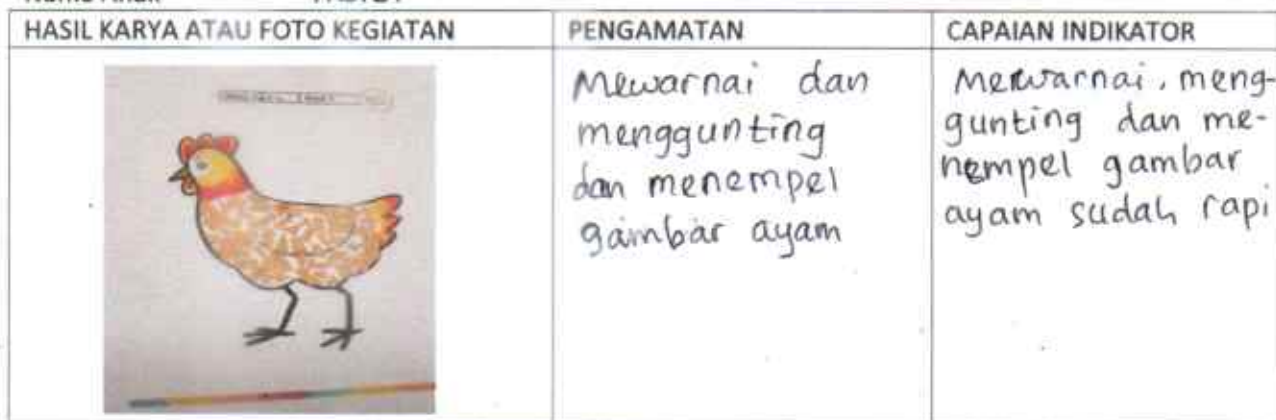 HASIL KARYA ATAU FOTO KEGIATAN
PENGAMATAN
CAPAIAN INDIKATOR
Mewarnai dan
menggunting
dan menempel
gambar ayam
Mewarnai, meng-
gunting dan me-
nempel gambar
ayam sudah rapi